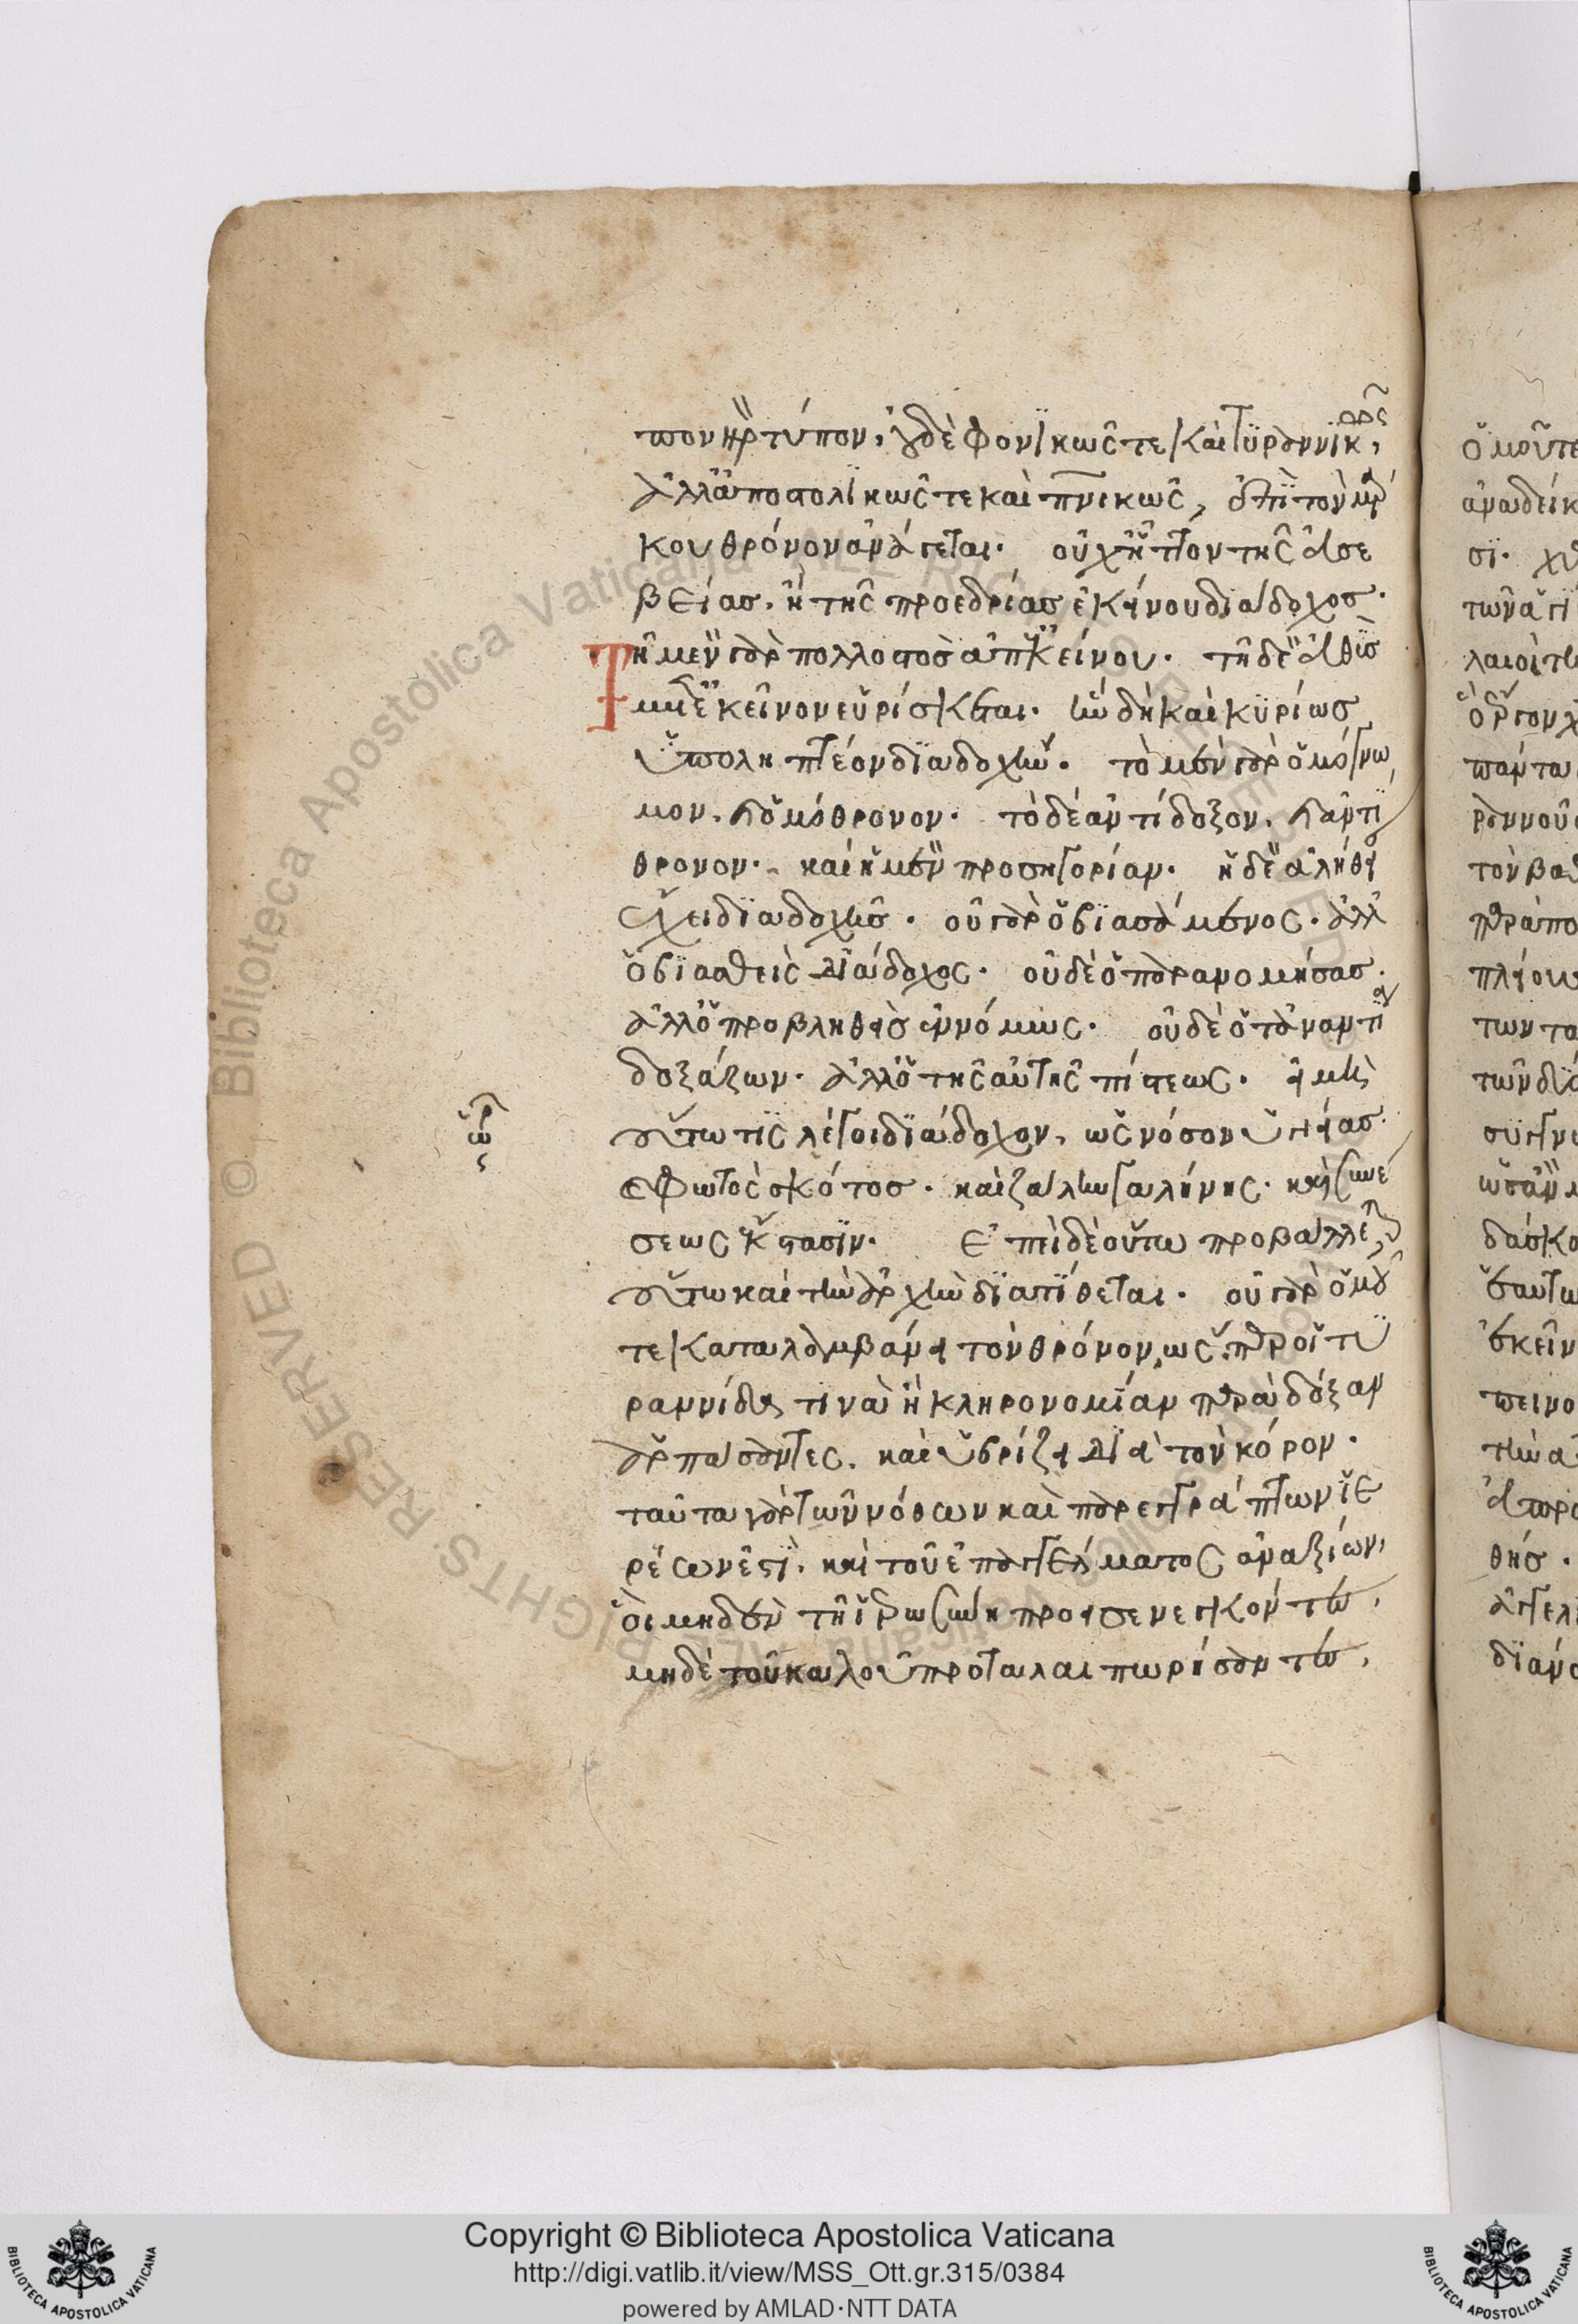 πονηρτύπον, ουδὲ φονϊκωῶς τε καὶ τϋραννϊκῶς,
ἀλλἀποστολϊκῶς τε καὶ πνικῶς, ἐπῒ τὸν μάρ
κου θρόνον ἀνάγεται. οὐχ ἧττον τῆς ἀσε
βείας, ἢ τῆς προεδρίας ἐκείνου διάδοχος.
Τῆ μὲν γὰρ πολλοστὸς ἀπ ἐκείνου. τῆ δὲ εὐθὺς
μετ ἐκεῖνον εὑρίσκεται. ἣν δὴ καὶ κϋρίως
ὑποληπτέον δϊαδοχήν. τὸ μὲν γὰρ ὁμόγνω
μον, καὶ ὁμόθρονον. τὸ δὲ ἀντίδοξον, καὶ ἀντί
θρονον. καὶ ἡ μὲν προσηγορίαν. ἡ δὲ ἀλήθειαν
ἔχει δϊαδοχῆς. οὐ γὰρ ὁ βϊασάμενος. ἀλλ
ὁ βϊασθεὶς διάδοχος. οὐδὲ ὁ παρανομήσας.
ἀλλ ὁ προβληθεὶς ἐννόμως. οὐδὲ ὁ τἀναντία
δοξάζων. ἀλλ ὁ τῆς αὐτῆς πίστεως. εἰ μὴ
οὕτω τις λέγοι δϊάδοχον, ὡς νόσον ὑγείας.
καὶ φωτὸς σκότος. καὶ ζάλην γαλήνης. καὶ συνέ
σεως ἔκστασϊν. Ἐπεὶ δὲ οὕτω προβάλλεται,
οὕτω καὶ τὴν ἀρχὴν δϊατίθεται. οὐ γὰρ ὁμοῦ
τε καταλαμβάνει τὸν θρόνον, ὡς περ οἱ τυ
ραννίδα τινὰ ἢ κληρονομίαν παρὰ δόξαν
ἁρπάσαντες. καὶ ὑβρίζει διὰ τὸν κόρον.
ταῦτα γὰρ τῶν νόθων καὶ παρεγγράπτων ἱε
ρέων ἐστὶ, καὶ τοῦ ἐπαγγέλματος ἀναξίων,
οἳ μηδὲν τῆ ἱερωσύνη προεισενεγκόντες,
μηδὲ τοῦ καλοῦ προταλαιπωρήσαντες,
ὡρ